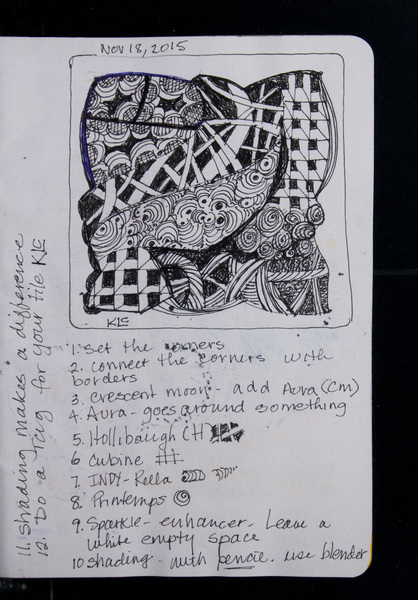 Nov 18, 2015
KLC
1. Set the corners
2. connect the corners with
borders
3. crescent moon - add Aura (Cm)
4. Aura - goes around something
5. Hollibaugh (H)
6 Cubine
7. INDY-Rella
8. Printemps
9. Sparkle - enhancer. Leave a
white empty space
10 shading - with pencil. use blender
11. Shading makes a difference
12. Do a Tag for your tile KLC